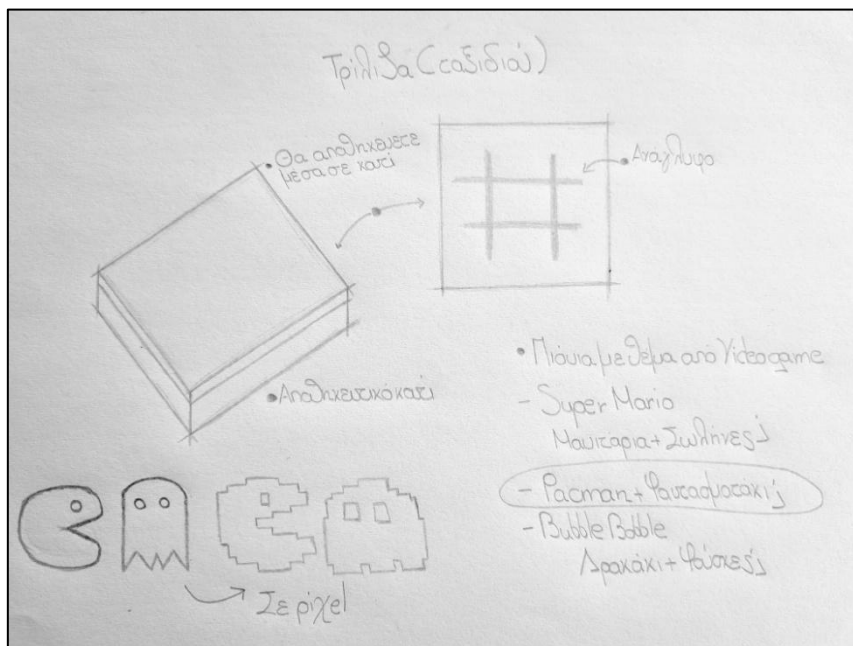 Τρίλιζα (ταξιδιού)
• Θα αποθηκεύετε
μέσα σε κάτι
• Ανάγλυφο
• Αποθηκευτικό κατί
• Πιόνια με θέμα από Videogame
- Super Mario
Μανιτάρια + Σωλήνες
- Pacman + Φαντασματάκι
- Bubble Bobble
Δρακάκι + Φούσκες
Σε pixel